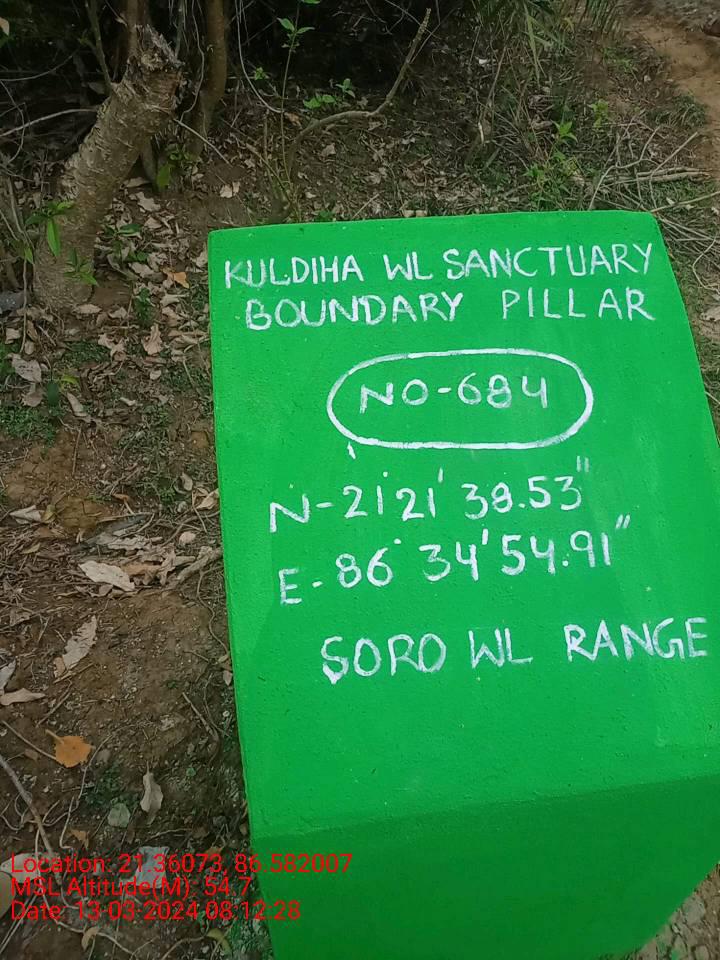 KULDIHA WL SANCTUARY
BOUNDARY PILLAR
NO-684
N-21°21' 38.53"
E-86° 34' 54.91"
SORO WL RANGE
Location: 21.36073, 86.582007
MSL Altitude(M): 54.7
Date: 13-03-2024 08:12:28